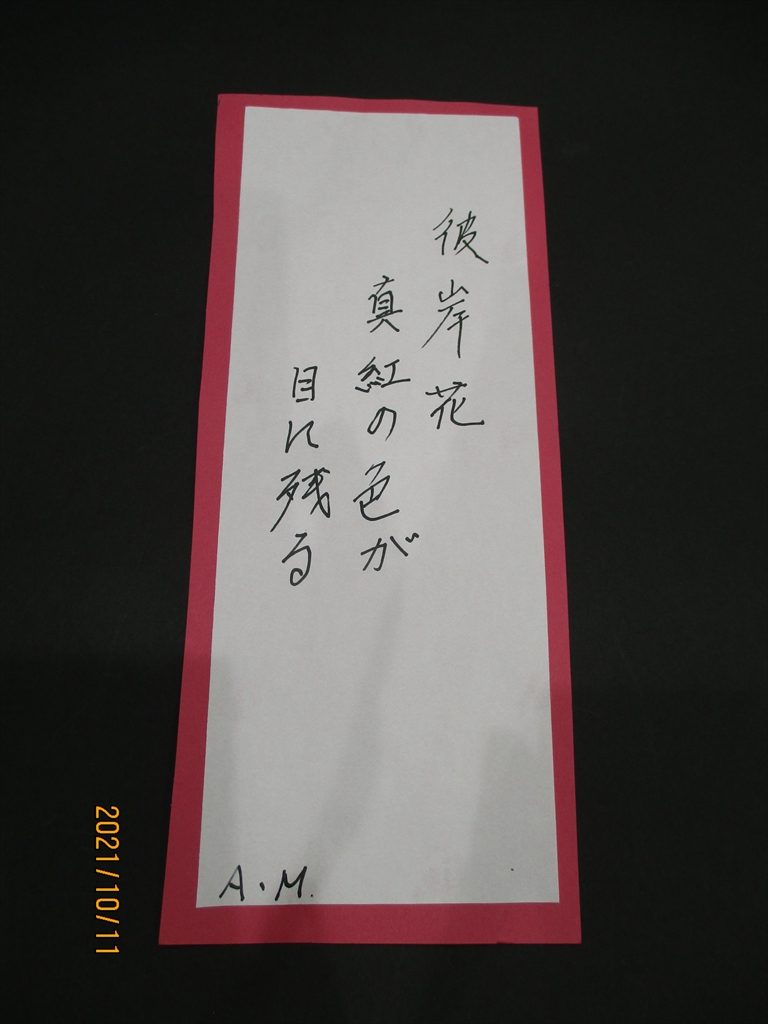 彼岸花
真紅の色が
目に残る
A.M.
2021/10/11